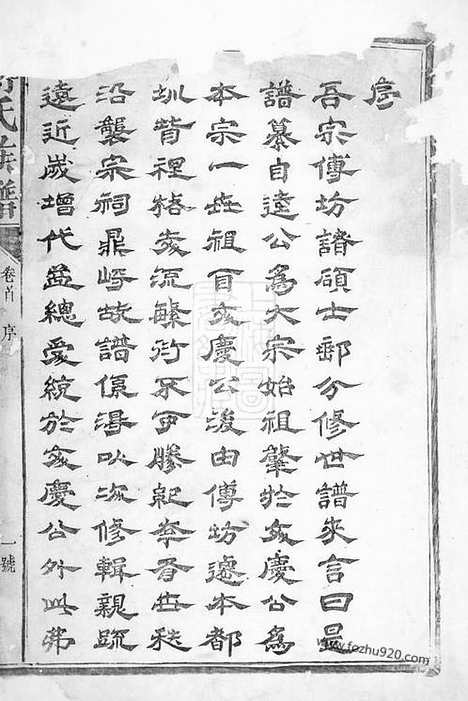 序
吾宗傳坊諸碩士郵分修世譜來言曰是
譜纂自遠公為大宗始祖肇於友慶公為
本宗一世祖自友慶公後由傳坊遷本都
圳背裡楮友流繁衍不可勝紀奉香世秩
沿襲宗祠鼎峙故譜係得以次修輯親疏
遠近歲增代益總受統於友慶公外此弗
氏族譜
卷首
序
一號
www.fozhu920.com